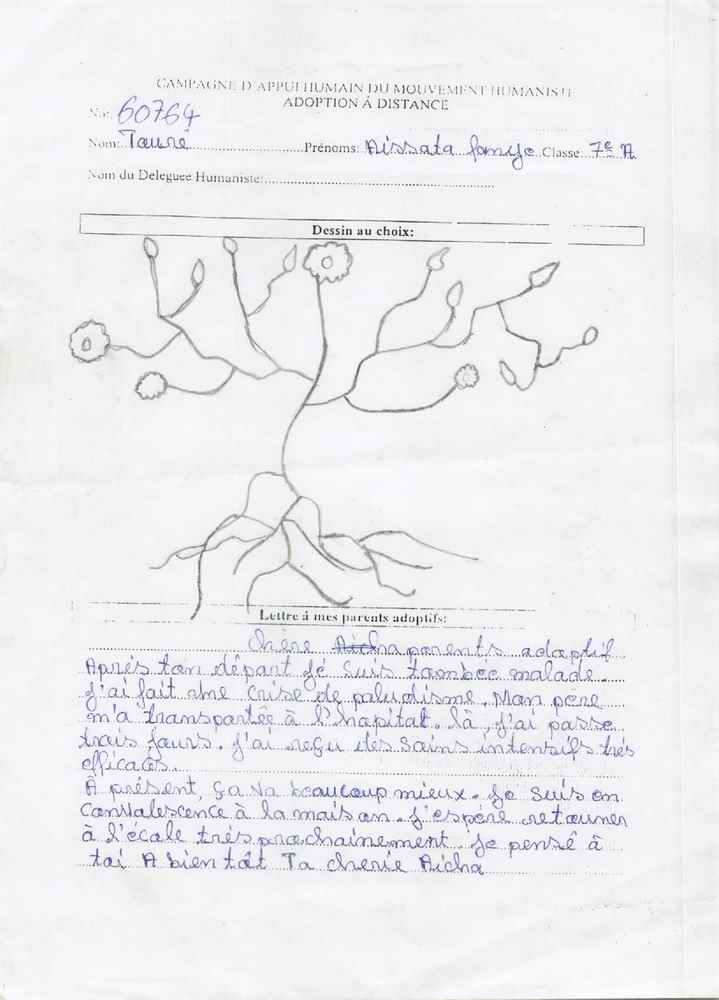 CAMPAGNE D'APPUI HUMAIN DU MOUVEMENT HUMANISTE
ADOPTION Á DISTANCE
No: 60764
Nom: Touré Prénoms: Aissata Classe 7e A
Nom du Deleguee Humaniste:
Dessin au choix:
Lettre á mes parents adoptifs:
Chère Aicha parents adoptif
Après ton départ je suis tombée malade.
j'ai fait une crise de paludisme. Mon père
m'a transportée à l'hopital. là, j'ai passé
trois jours. j'ai reçu des soins intensifs très
efficaces.
À présent, ça va beaucoup mieux. je suis en
convalescence à la maison. j'espère retouner
à l'école très prochainement. je pense à
toi A bientôt Ta cherie Aicha